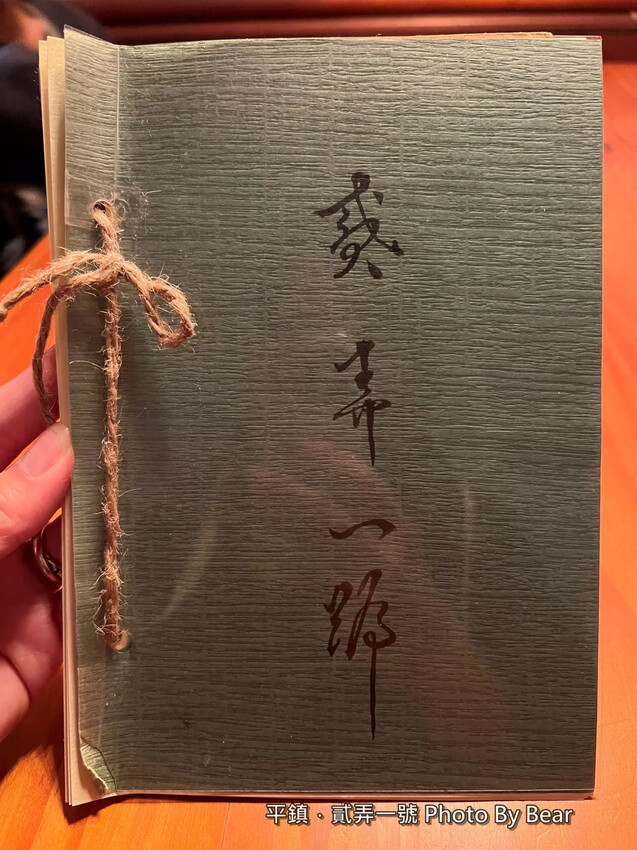 貳弄一號
平鎮・貳弄一號 Photo By Bear